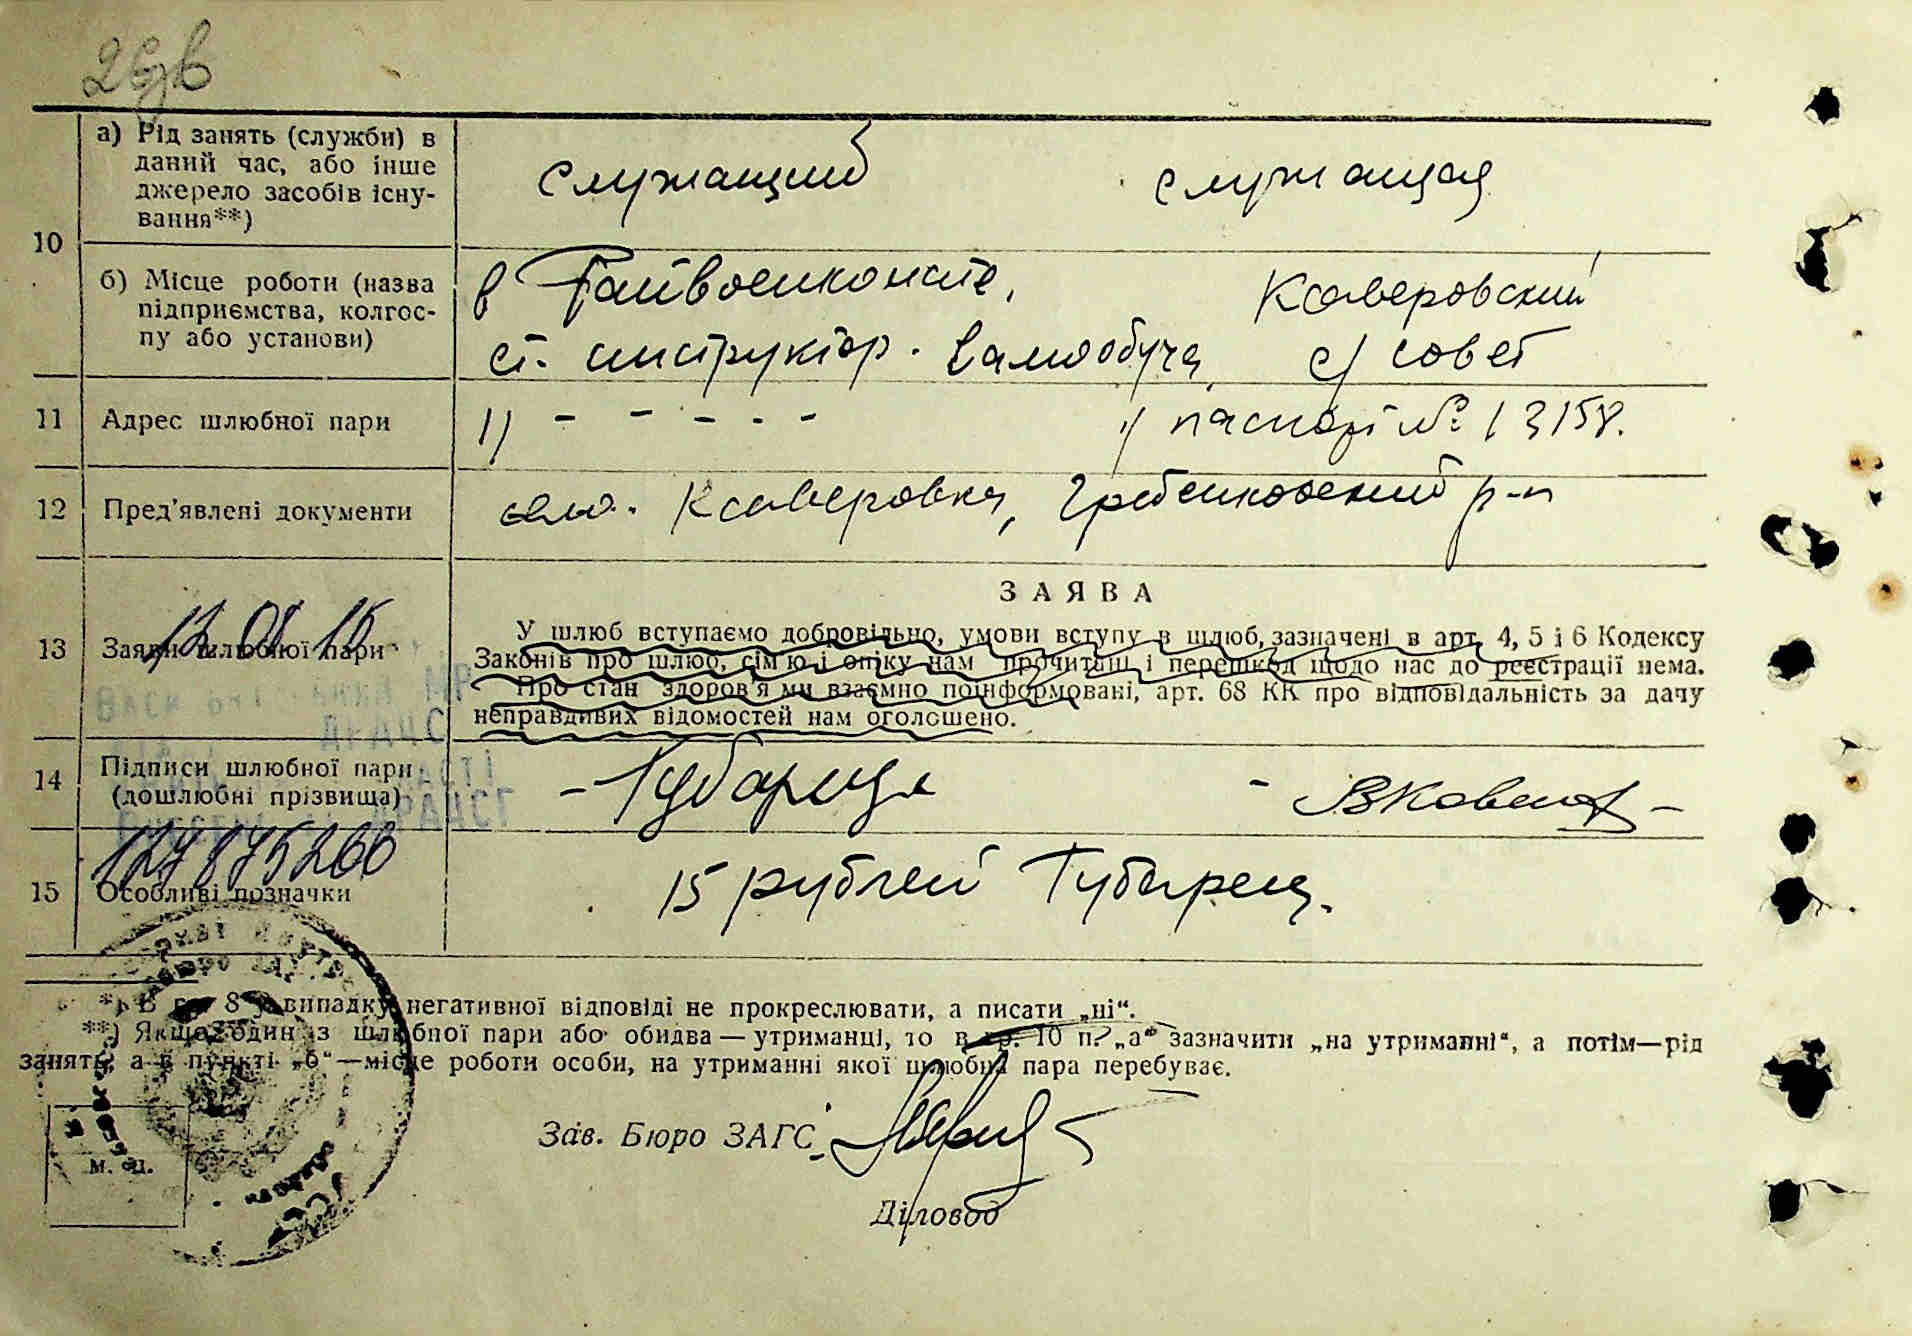 10
а) Рід занять (служби) в
даний час, або інше
джерело засобів існу-
вання**)
служащий служащая
б) Місце роботи (назва
підприємства, колгос-
пу або установи)
в Райвоенкомате, Ксаверовский
ст. инструктор. Всеобуча, с/ совет
11 Адрес шлюбної пари
1) - - - - - 1) паспорт № 13158.
12 Пред'явлені документи
село. Ксаверовка, Гребенковский р-н
13 Заяви шлюбної пари
ЗАЯВА
У шлюб вступаємо добровільно, умови вступу в шлюб, зазначені в арт. 4, 5 і 6 Кодексу
Законів про шлюб, сім'ю і опіку нам прочитані і перешкод щодо нас до реєстрації нема.
Про стан здоров'я ми взаємно поінформовані, арт. 68 КК про відповідальність за дачу
неправдивих відомостей нам оголошено.
14 Підписи шлюбної пари
(дошлюбні прізвища)
ДРАЦС
ДРАЦСГ
15 Особливі позначки
15 рублей Губарец.
*) В гр. 8 у випадку негативної відповіді не прокреслювати, а писати „ні“.
**) Якщо один із шлюбної пари або обидва — утриманці, то в гр. 10 п. „а“ зазначити „на утриманні“, а потім—рід
занять, а в пункті „б“—місце роботи особи, на утриманні якої шлюбна пара перебуває.
Зав. Бюро ЗАГС
м. п.
Діловод